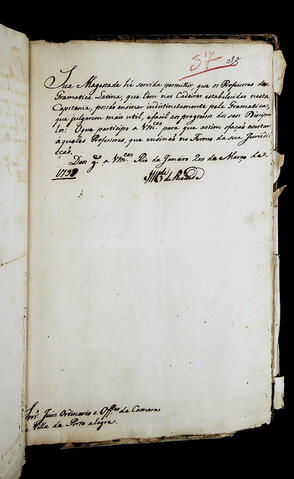 57
Sua Magestade foi servida permittir, que os Professores de
Gramatica Latina, que têm nas Cadeiras estabelecidas nesta
Capitania, possão ensinar indistinctamente pela Gramatica,
que julgarem mais util, e facil ao progresso dos seus Discipu-
los: O que participo a Vm.ces para que assim o fação constar
àquelles Professores, que ensinão no Termo da sua Jurisdic-
ção.
Deos g.e a Vm.ces Rio de Janeiro 20 de Março de
1798
Snr.s Juiz Ordinario e Off.es da Camara
Villa de Porto alegre.